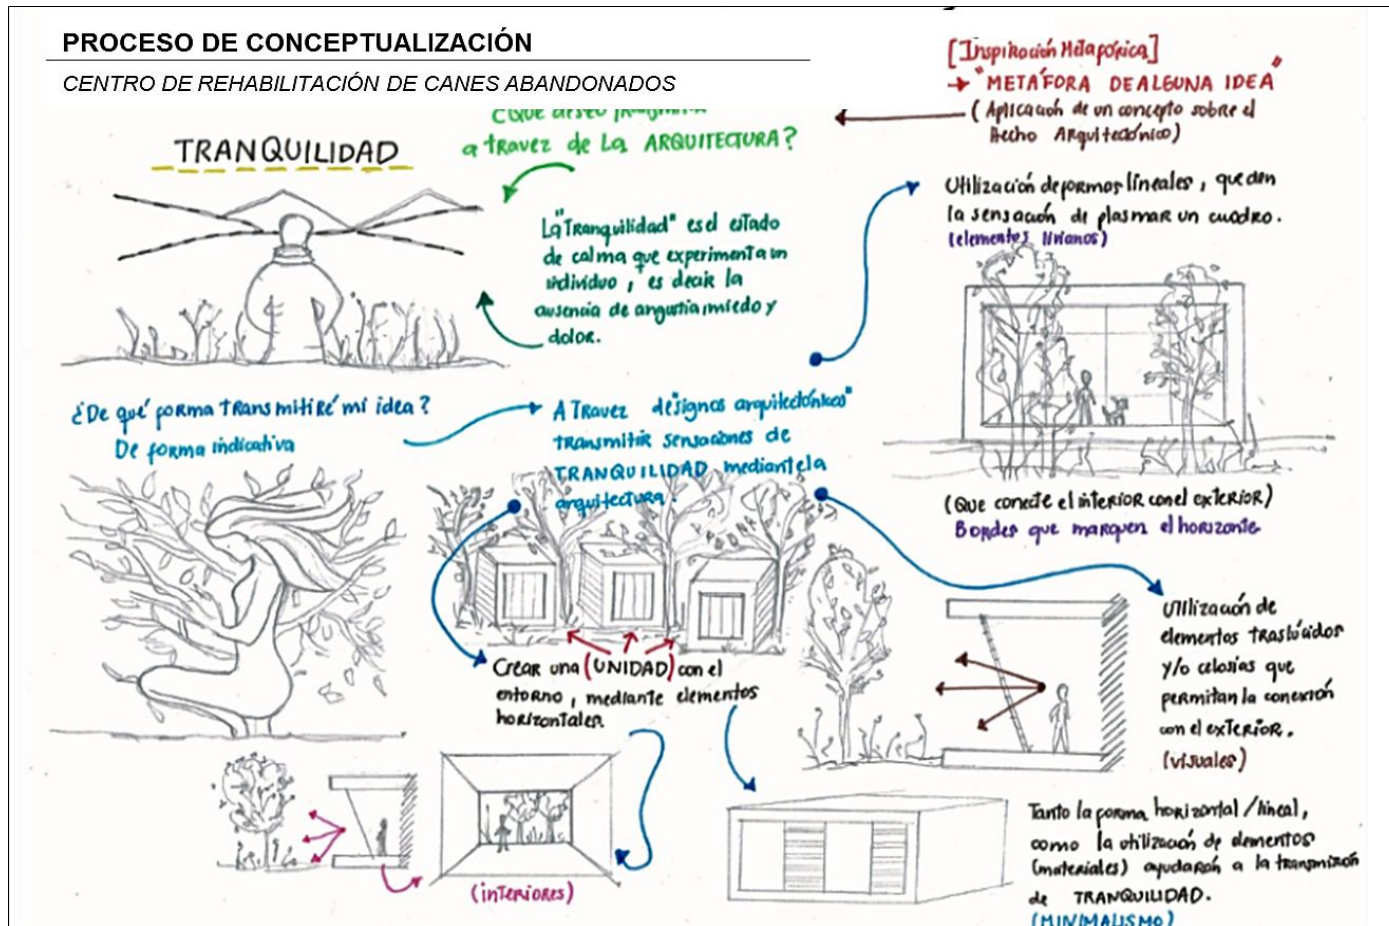 PROCESO DE CONCEPTUALIZACIÓN
CENTRO DE REHABILITACIÓN DE CANES ABANDONADOS
[Inspiración Metafórica]
"METÁFORA DE ALGUNA IDEA"
(Aplicación de un concepto sobre el
Hecho Arquitectónico)
a travez de La ARQUITECTURA?
TRANQUILIDAD
La "Tranquilidad" es el estado
de calma que experimenta un
individuo, es decir la
ausencia de angustia, miedo y
dolor.
Utilización de formas líneales, que den
la sensación de plasmar un cuadro.
(elementos livianos)
(Que conecte el interior con el exterior)
Bordes que marquen el horizonte
¿De qué forma transmitiré mi idea?
De forma indicativa
A Travez de "signos arquitectónicos"
transmitir sensaciones de
TRANQUILIDAD mediante la
arquitectura.
Crear una (UNIDAD) con el
entorno, mediante elementos
horizontales.
Utilización de
elementos traslúcidos
y/o celosías que
permitan la conexión
con el exterior.
(visuales)
(interiores)
Tanto la forma horizontal/lineal,
como la utilización de elementos
(materiales) ayudarán a la transmisión
de TRANQUILIDAD.
(MINIMALISMO)